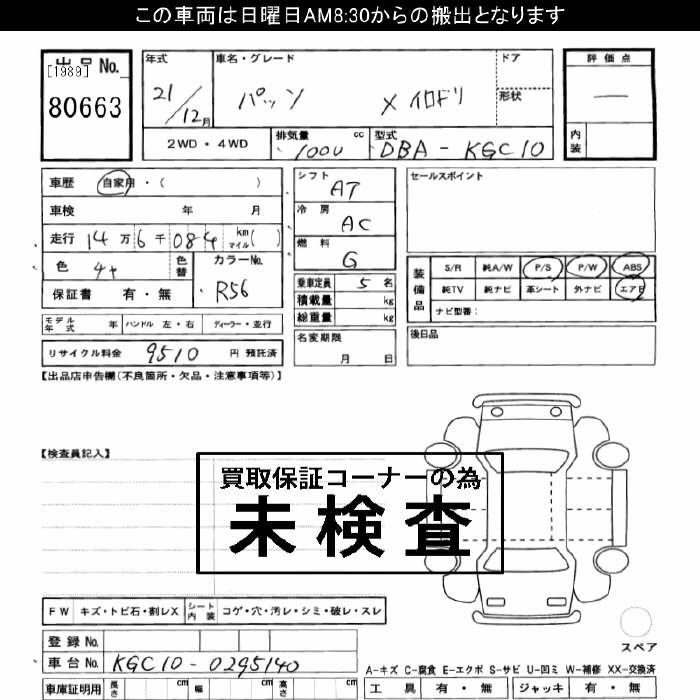 この車両は日曜日AM8:30からの搬出となります
出品No.
[1989]
80663
年式
21/12月
車名・グレード
パッソ X イロドリ
ドア
形状
評価点
—
内装
2WD・4WD
排気量 cc
1000
型式
DBA-KGC10
車歴 自家用・( )
車検 年 月
走行 14万6千084 km マイル( )
色 チャ
色替
カラーNo. R56
保証書 有・無
モデル年式 年 ハンドル 左・右 ディーラー・並行
リサイクル料金 9510 円 預託済
シフト AT
冷房 AC
燃料 G
乗車定員 5名
積載量 kg
総重量 kg
名変期限
月 日
セールスポイント
装備品
S/R 純A/W P/S P/W ABS
純TV 純ナビ 革シート 外ナビ エアB
ナビ型番:
後日品
【出品店申告欄(不良箇所・欠品・注意事項等)】
【検査員記入】
買取保証コーナーの為
未検査
FW キズ・トビ石・割レX シート内装 コゲ・穴・汚レ・シミ・破レ・スレ
登録No.
車台No. KGC10-0295140
車庫証明用 長さ cm 幅 cm 高さ cm
スペア
A-キズ C-腐食 E-エクボ S-サビ U-凹ミ W-補修 XX-交換済
工具 有・無 ジャッキ 有・無